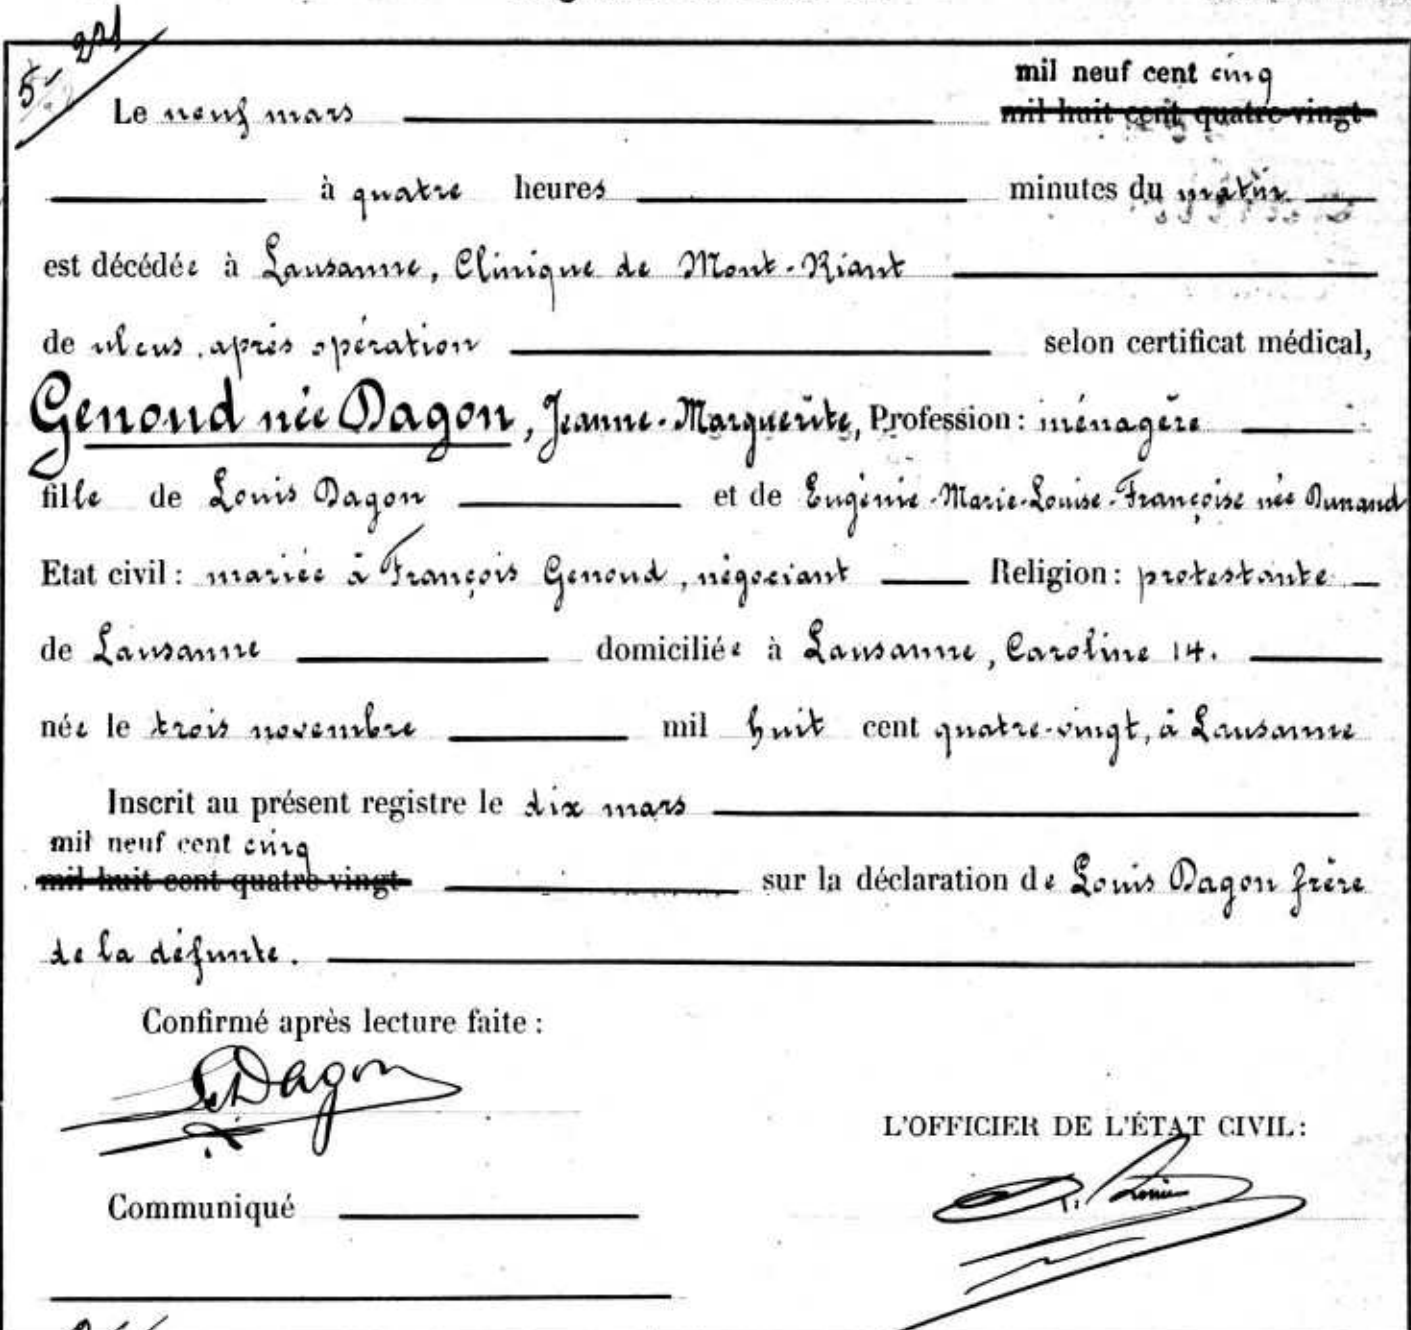 221
5
mil neuf cent cinq
Le neuf mars mil huit cent quatre-vingt
à quatre heures minutes du matin
est décédée à Lausanne, Clinique de Mont-Riant
de ulcus après opération selon certificat médical,
Genoud née Dagon, Jeanne-Marguerite, Profession : ménagère
fille de Louis Dagon et de Eugénie-Marie-Louise-Françoise née Dunand
Etat civil : mariée à François Genoud, négociant Religion : protestante
de Lausanne domiciliée à Lausanne, Caroline 14.
née le trois novembre mil huit cent quatre-vingt, à Lausanne
Inscrit au présent registre le dix mars
mil neuf cent cinq
mil huit cent quatre-vingt sur la déclaration de Louis Dagon frère
de la défunte.
Confirmé après lecture faite :
Ls Dagon
L'OFFICIER DE L'ÉTAT CIVIL :
Communiqué